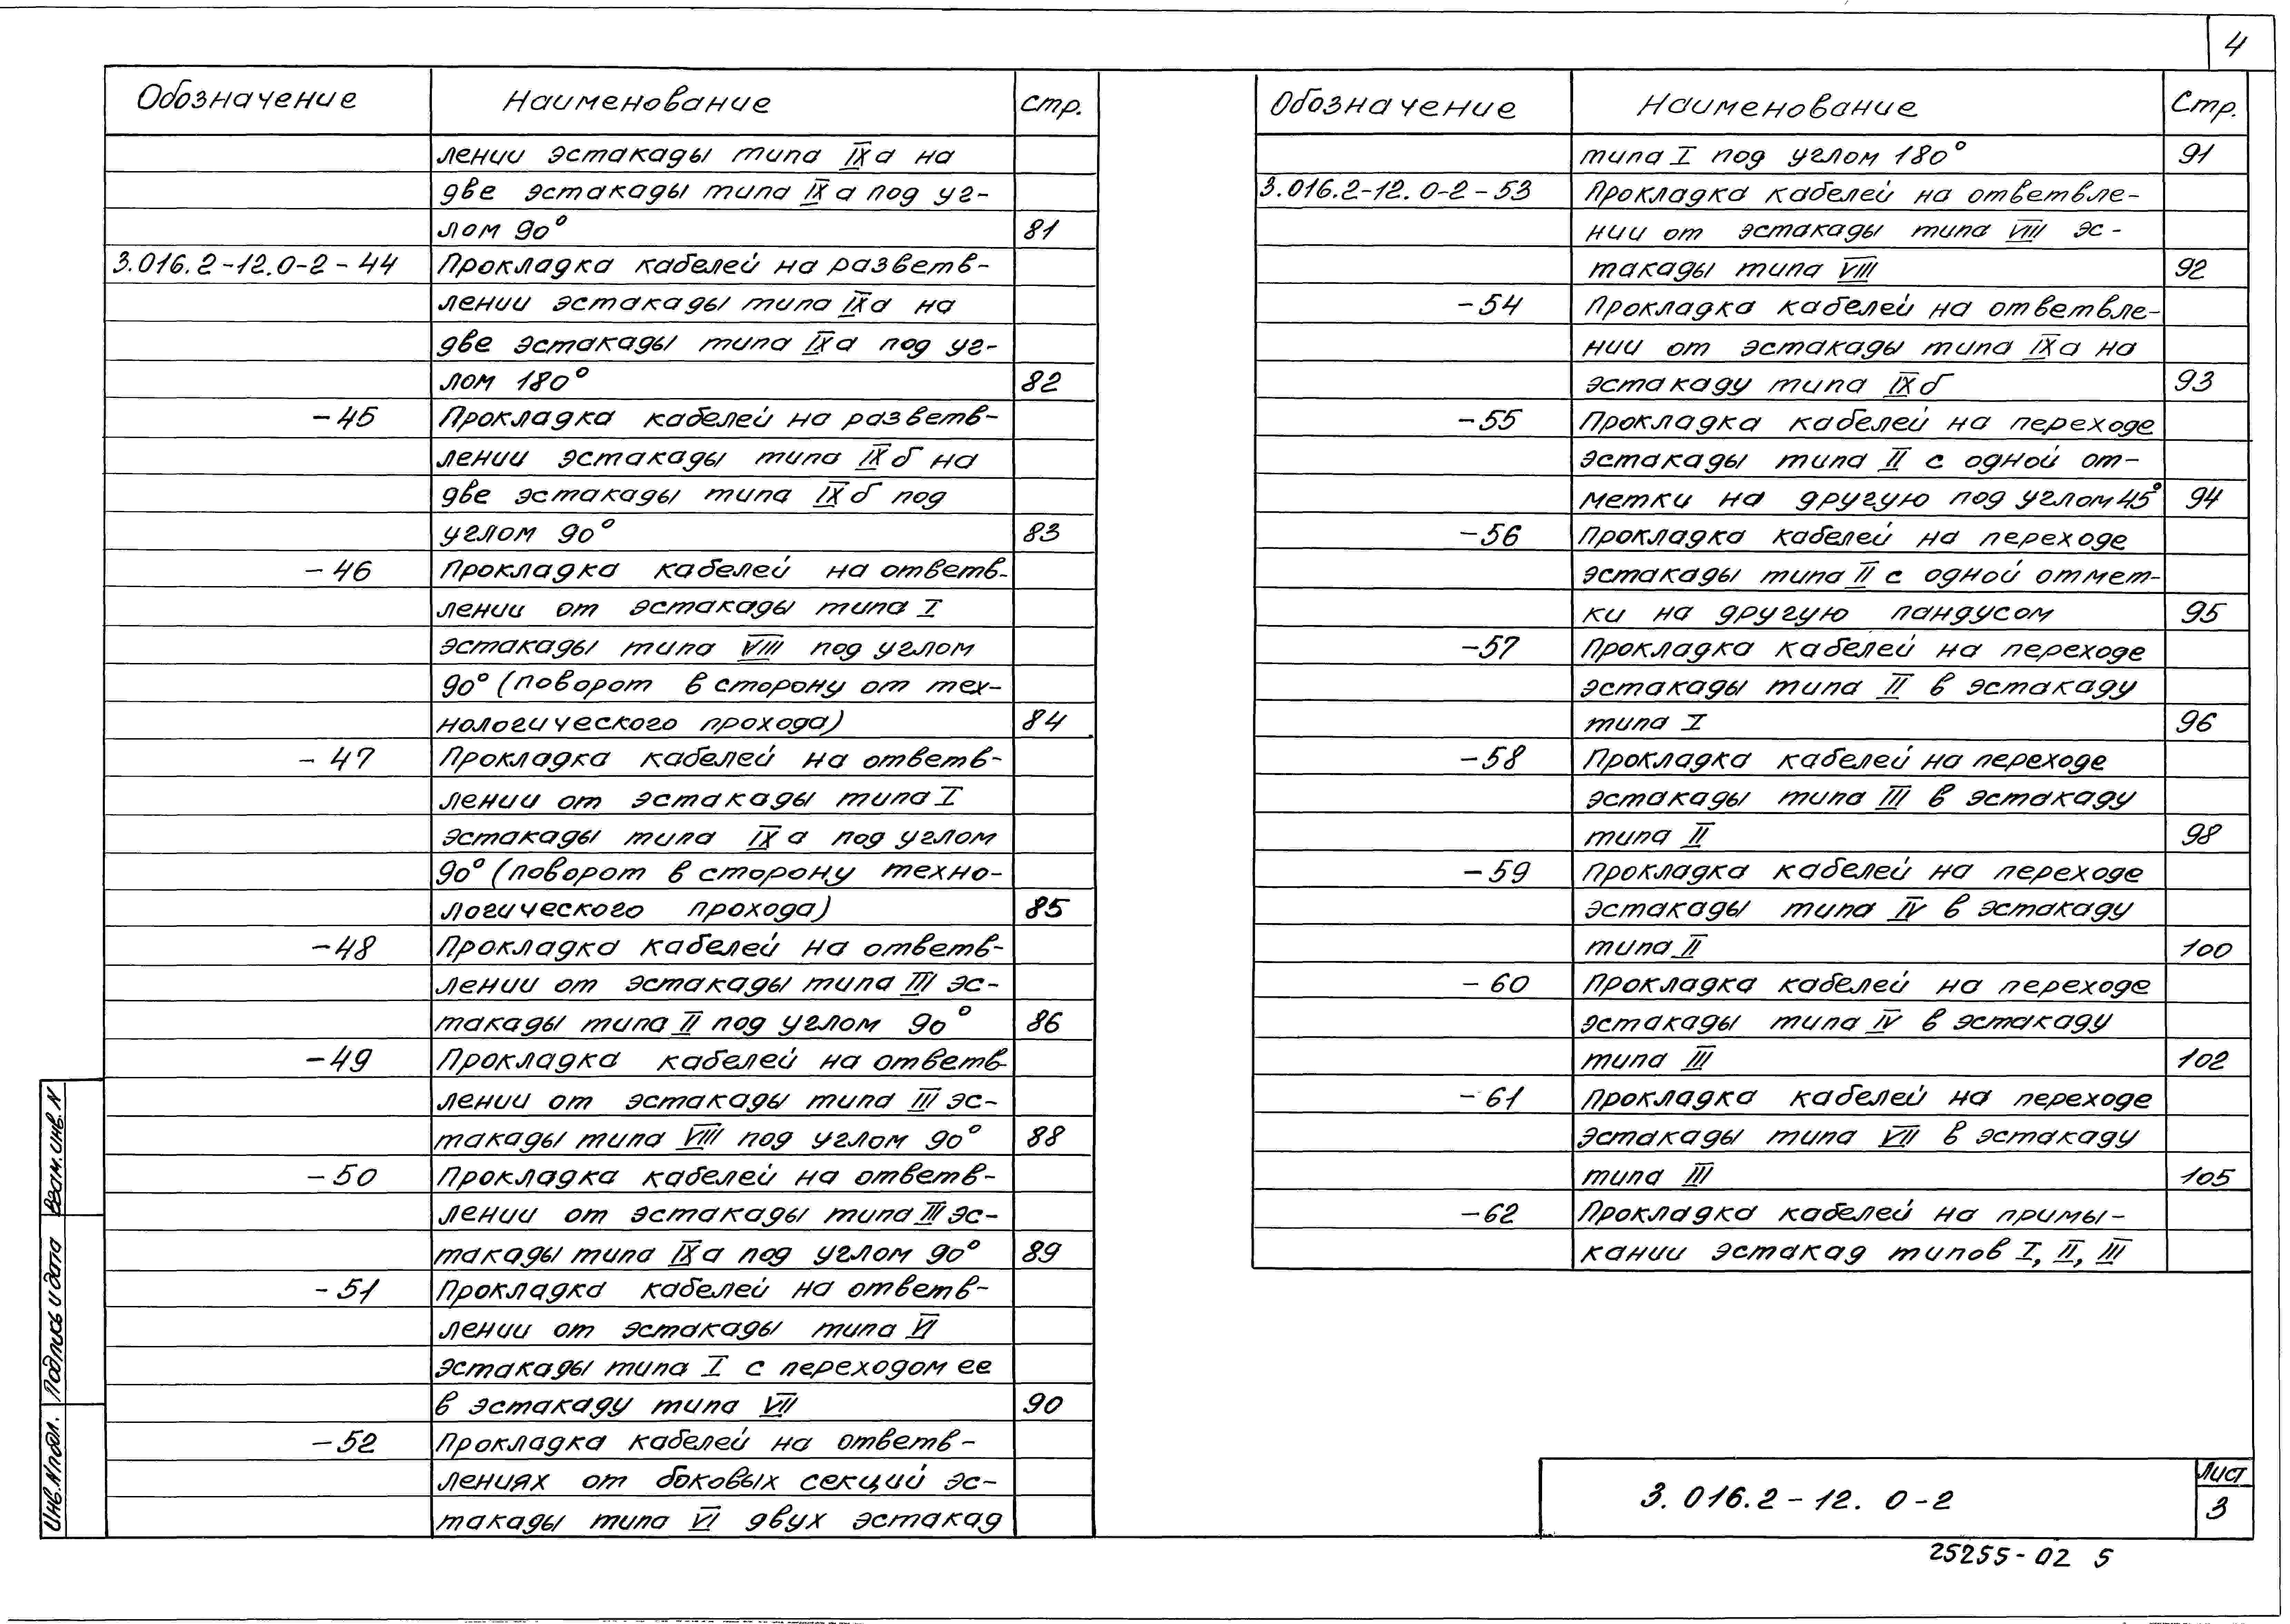 4
Обозначение Наименование стр.
лении эстакады типа IXа на
две эстакады типа IXа под уг-
лом 90° 81
3.016.2-12.0-2-44 Прокладка кабелей на разветв-
лении эстакады типа IXа на
две эстакады типа IXа под уг-
лом 180° 82
-45 Прокладка кабелей на разветв-
лении эстакады типа IXб на
две эстакады типа IXб под
углом 90° 83
-46 Прокладка кабелей на ответв-
лении от эстакады типа I
эстакады типа VIII под углом
90° (поворот в сторону от тех-
нологического прохода) 84
-47 Прокладка кабелей на ответв-
лении от эстакады типа I
эстакады типа IXа под углом
90° (поворот в сторону техно-
логического прохода) 85
-48 Прокладка кабелей на ответв-
лении от эстакады типа III эс-
такады типа II под углом 90° 86
-49 Прокладка кабелей на ответв-
лении от эстакады типа III эс-
такады типа VIII под углом 90° 88
-50 Прокладка кабелей на ответв-
лении от эстакады типа III эс-
такады типа IXа под углом 90° 89
-51 Прокладка кабелей на ответв-
лении от эстакады типа VI
эстакады типа I с переходом ее
в эстакаду типа VII 90
-52 Прокладка кабелей на ответв-
лениях от боковых секций эс-
такады типа VI двух эстакад
Обозначение Наименование Стр.
типа I под углом 180° 91
3.016.2-12.0-2-53 Прокладка кабелей на ответвле-
нии от эстакады типа VIII эс-
такады типа VIII 92
-54 Прокладка кабелей на ответвле-
нии от эстакады типа IXа на
эстакаду типа IXб 93
-55 Прокладка кабелей на переходе
эстакады типа II с одной от-
метки на другую под углом 45° 94
-56 Прокладка кабелей на переходе
эстакады типа II с одной отмет-
ки на другую пандусом 95
-57 Прокладка кабелей на переходе
эстакады типа II в эстакаду
типа I 96
-58 Прокладка кабелей на переходе
эстакады типа III в эстакаду
типа II 98
-59 Прокладка кабелей на переходе
эстакады типа IV в эстакаду
типа II 100
-60 Прокладка кабелей на переходе
эстакады типа IV в эстакаду
типа III 102
-61 Прокладка кабелей на переходе
эстакады типа VII в эстакаду
типа III 105
-62 Прокладка кабелей на примы-
кании эстакад типов I, II, III
Инв.Nподл. Подпись и дата Взам.инв.N
3.016.2-12. 0-2
Лист
3
25255-02 5